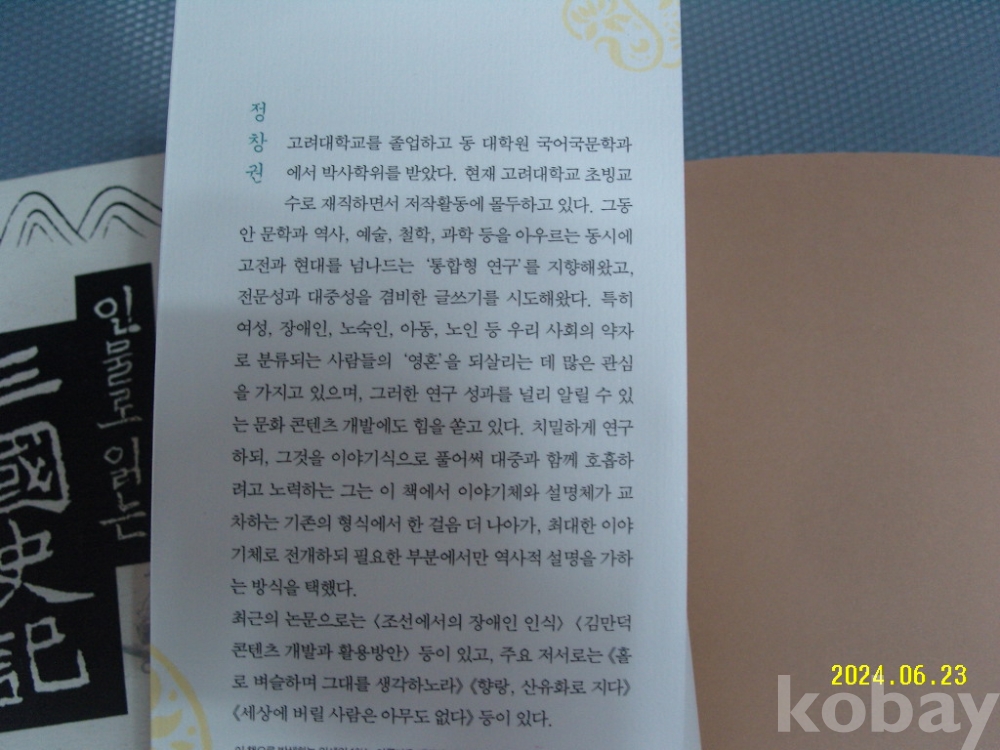 인물로 읽는
三國史記
정창권
고려대학교를 졸업하고 동 대학원 국어국문학과
에서 박사학위를 받았다. 현재 고려대학교 초빙교
수로 재직하면서 저작활동에 몰두하고 있다. 그동
안 문학과 역사, 예술, 철학, 과학 등을 아우르는 동시에
고전과 현대를 넘나드는 ‘통합형 연구’를 지향해왔고,
전문성과 대중성을 겸비한 글쓰기를 시도해왔다. 특히
여성, 장애인, 노숙인, 아동, 노인 등 우리 사회의 약자
로 분류되는 사람들의 ‘영혼’을 되살리는 데 많은 관심
을 가지고 있으며, 그러한 연구 성과를 널리 알릴 수 있
는 문화 콘텐츠 개발에도 힘을 쏟고 있다. 치밀하게 연구
하되, 그것을 이야기식으로 풀어써 대중과 함께 호흡하
려고 노력하는 그는 이 책에서 이야기체와 설명체가 교
차하는 기존의 형식에서 한 걸음 더 나아가, 최대한 이야
기체로 전개하되 필요한 부분에서만 역사적 설명을 가하
는 방식을 택했다.
최근의 논문으로는 〈조선에서의 장애인 인식〉 〈김만덕
콘텐츠 개발과 활용방안〉 등이 있고, 주요 저서로는 《홀
로 벼슬하며 그대를 생각하노라》 《향랑, 산유화로 지다》
《세상에 버릴 사람은 아무도 없다》 등이 있다.
2024.06.23
kobay